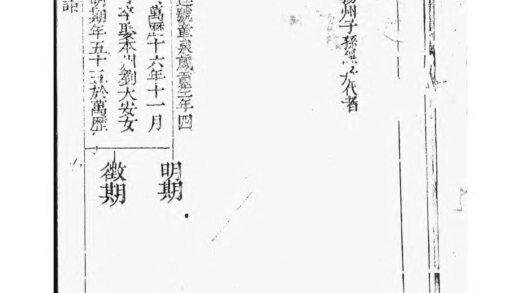 州子孫六代者
號重泉歲貢年四
萬歷十六年十一月
卒娶本州劉大安女
明期年五十三於萬歷
明期
徵期